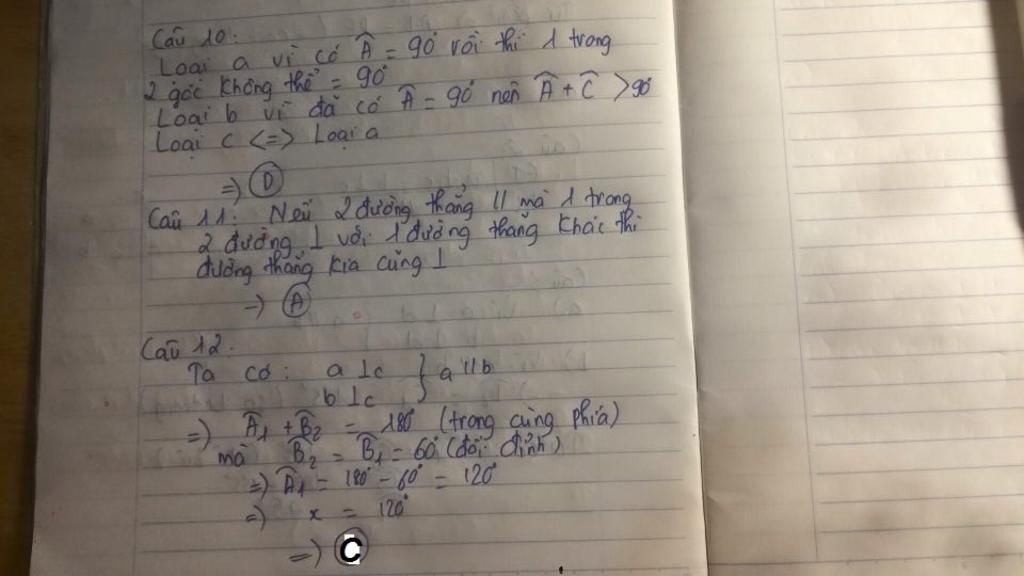 Câu 10:
Loại a vì có Â = 90° rồi thì 1 trong
2 góc không thể = 90°
Loại b vì đã có Â = 90° nên Â + Ĉ > 90°
Loại c <=> Loại a
=> D
Câu 11: Nếu 2 đường thẳng // mà 1 trong
2 đường ⊥ với 1 đường thẳng khác thì
đường thẳng kia cũng ⊥
-> A
Câu 12:
Ta có: a ⊥ c } a // b
b ⊥ c
=> Â1 + B̂2 = 180° (trong cùng phía)
mà B̂2 = B̂1 = 60° (đối đỉnh)
=> Â1 = 180° - 60° = 120°
=> x = 120°
=> C